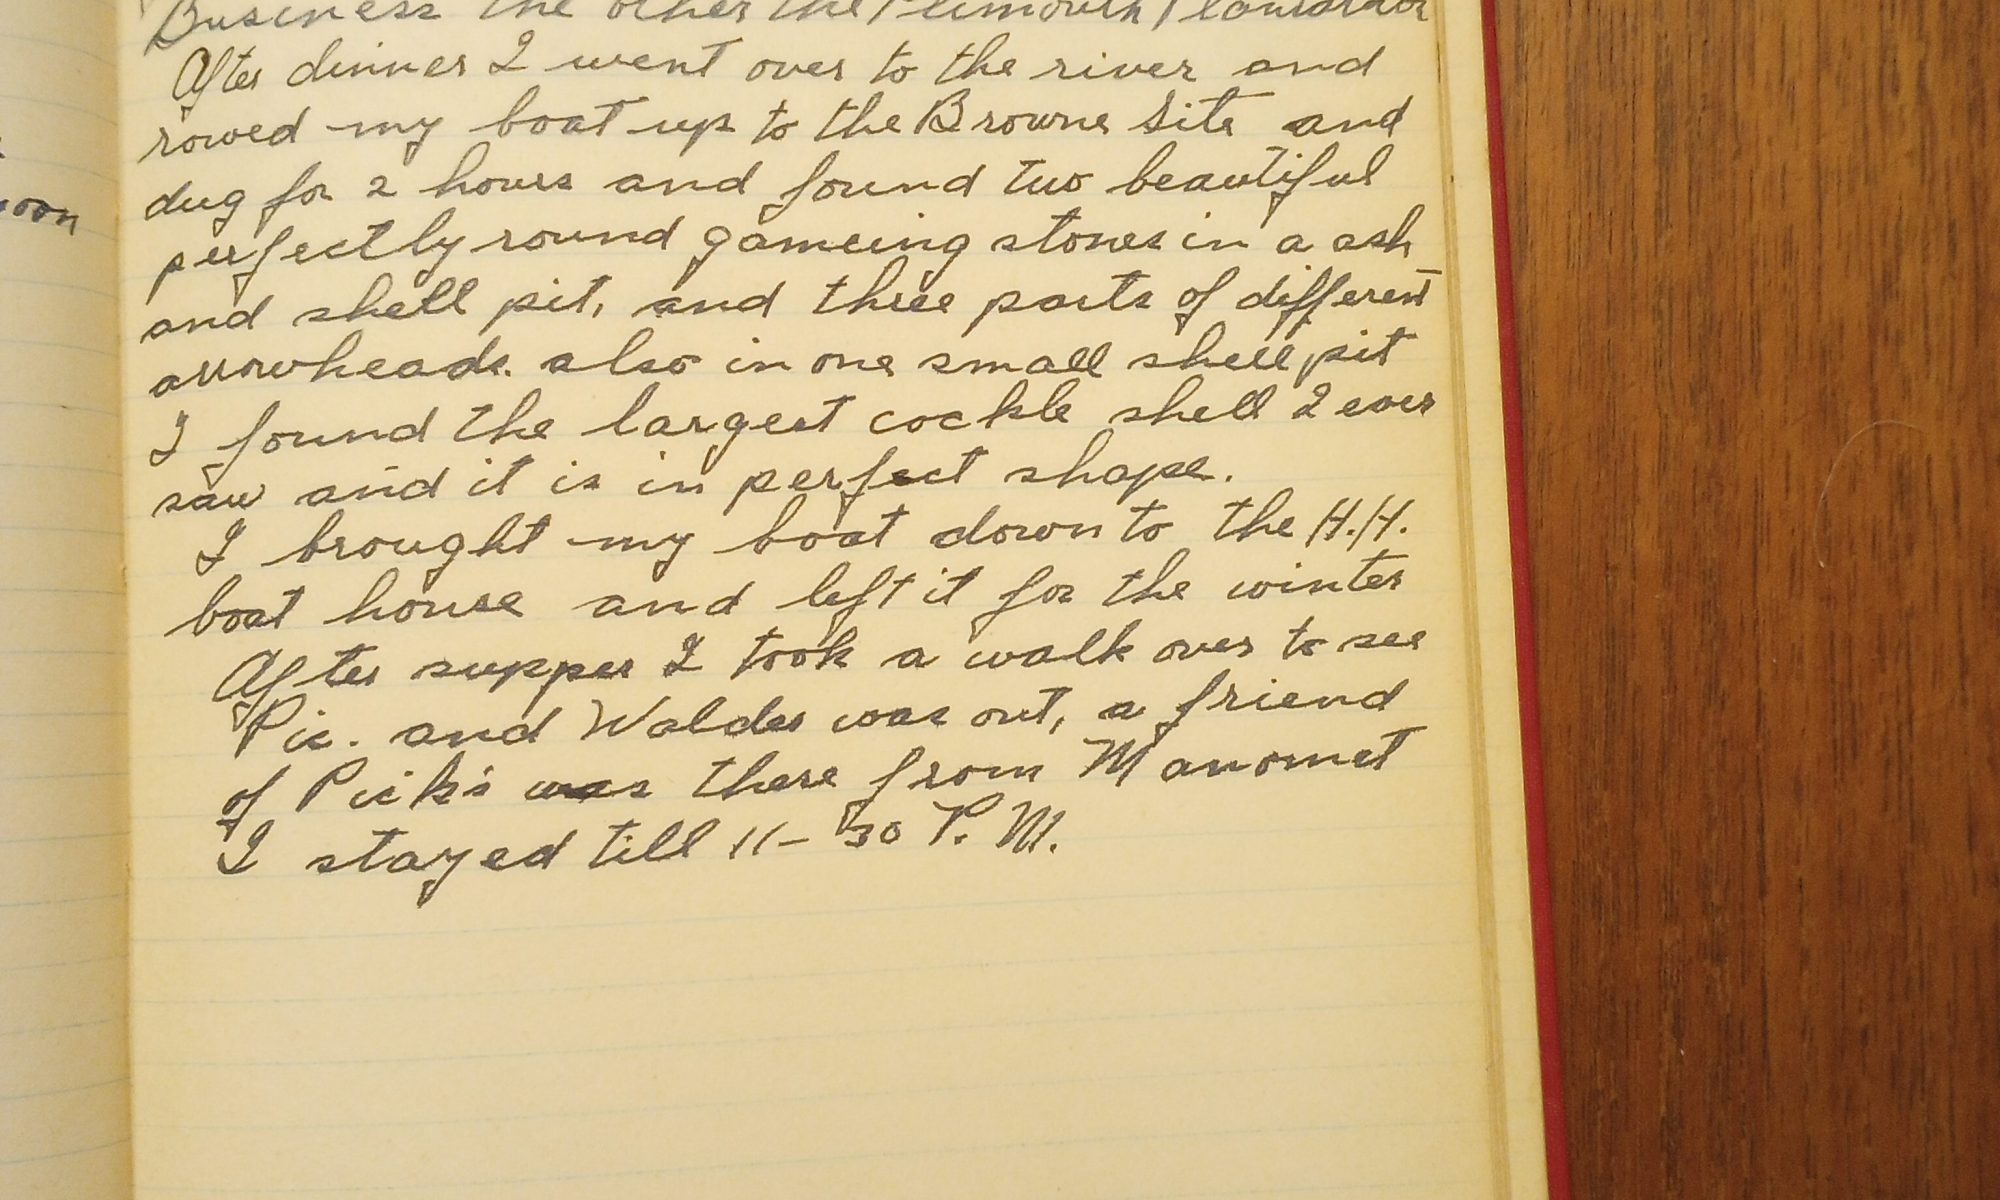 Business the other the Plimouth Plantation
After dinner I went over to the river and
rowed my boat up to the Browne Site and
dug for 2 hours and found two beautiful
perfectly round gameing stones in a ash
and shell pit, and three parts of different
arrowheads. also in one small shell pit
I found the largest cockle shell I ever
saw and it is in perfect shape.
I brought my boat down to the H.H.
boat house and left it for the winter
After supper I took a walk over to see
Pic. and Walder was out, a friend
of Pick's was there from Manomet
I stayed till 11-30 P.M.
oon